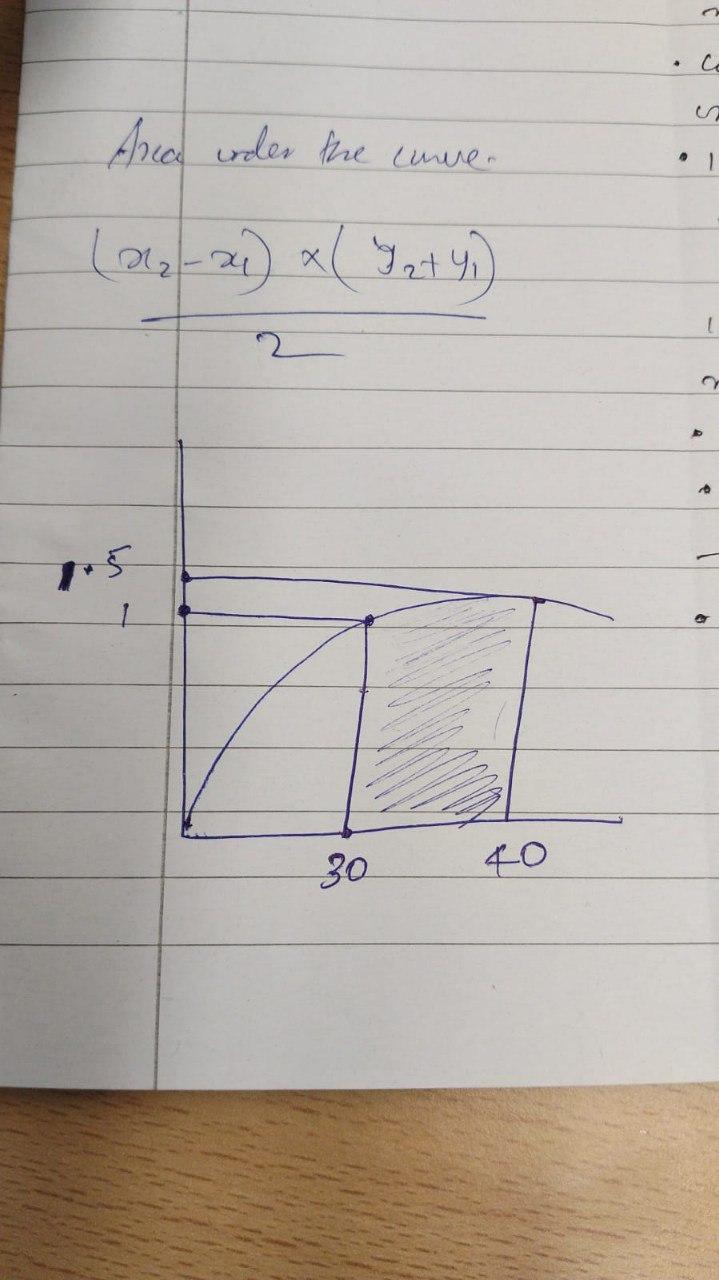 Area under the curve.
(x₂-x₁) x (y₂+y₁)
2
1.5
1
30
40